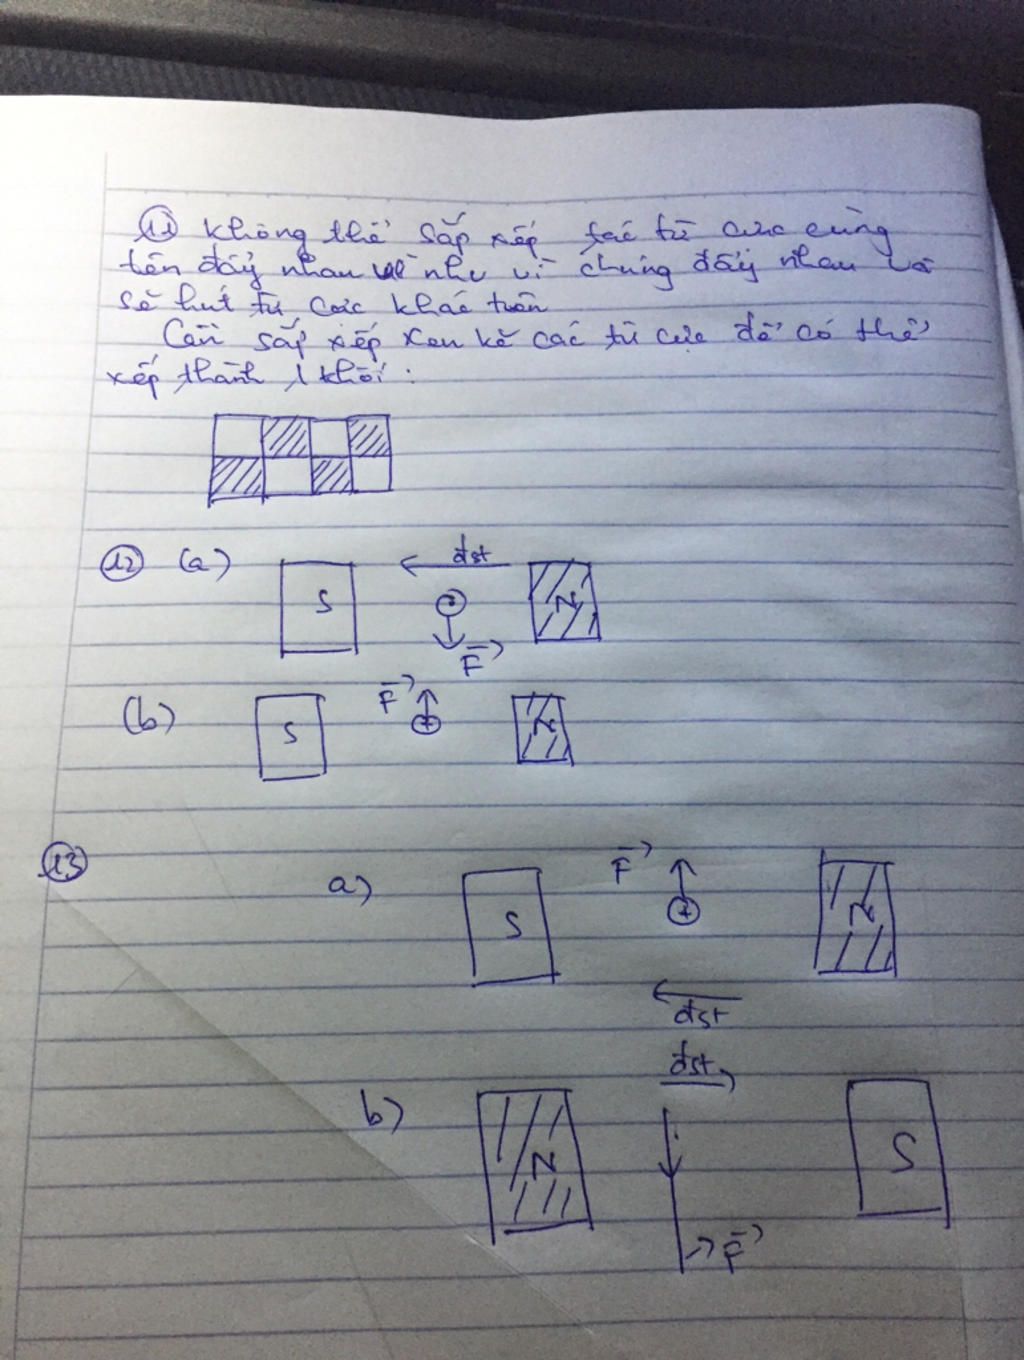 11 Không thể sắp xếp các từ cực cùng
tên đẩy nhau như vì chúng đẩy nhau và
sẽ hút từ cực khác tên
Cần sắp xếp xen kẽ các từ cực để có thể
xếp thành 1 khối :
12 (a) S đst N
F
(b) S F N
13
a) S F N
đst
đst
b) N S
F